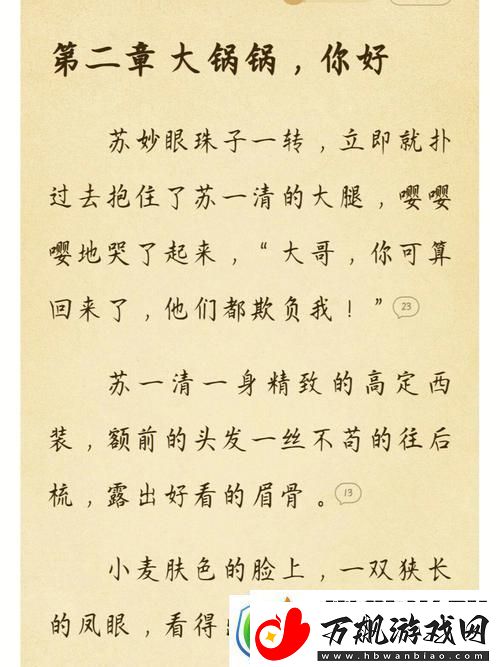 第二章 大锅锅，你好
苏妙眼珠子一转，立即就扑
过去抱住了苏一清的大腿，嘤嘤
嘤地哭了起来，“大哥，你可算
回来了，他们都欺负我！”23
苏一清一身精致的高定西
装，额前的头发一丝不苟的往后
梳，露出好看的眉骨。13
小麦肤色的脸上，一双狭长
的凤眼，看得
万飙游戏网
hbwanbiao.com